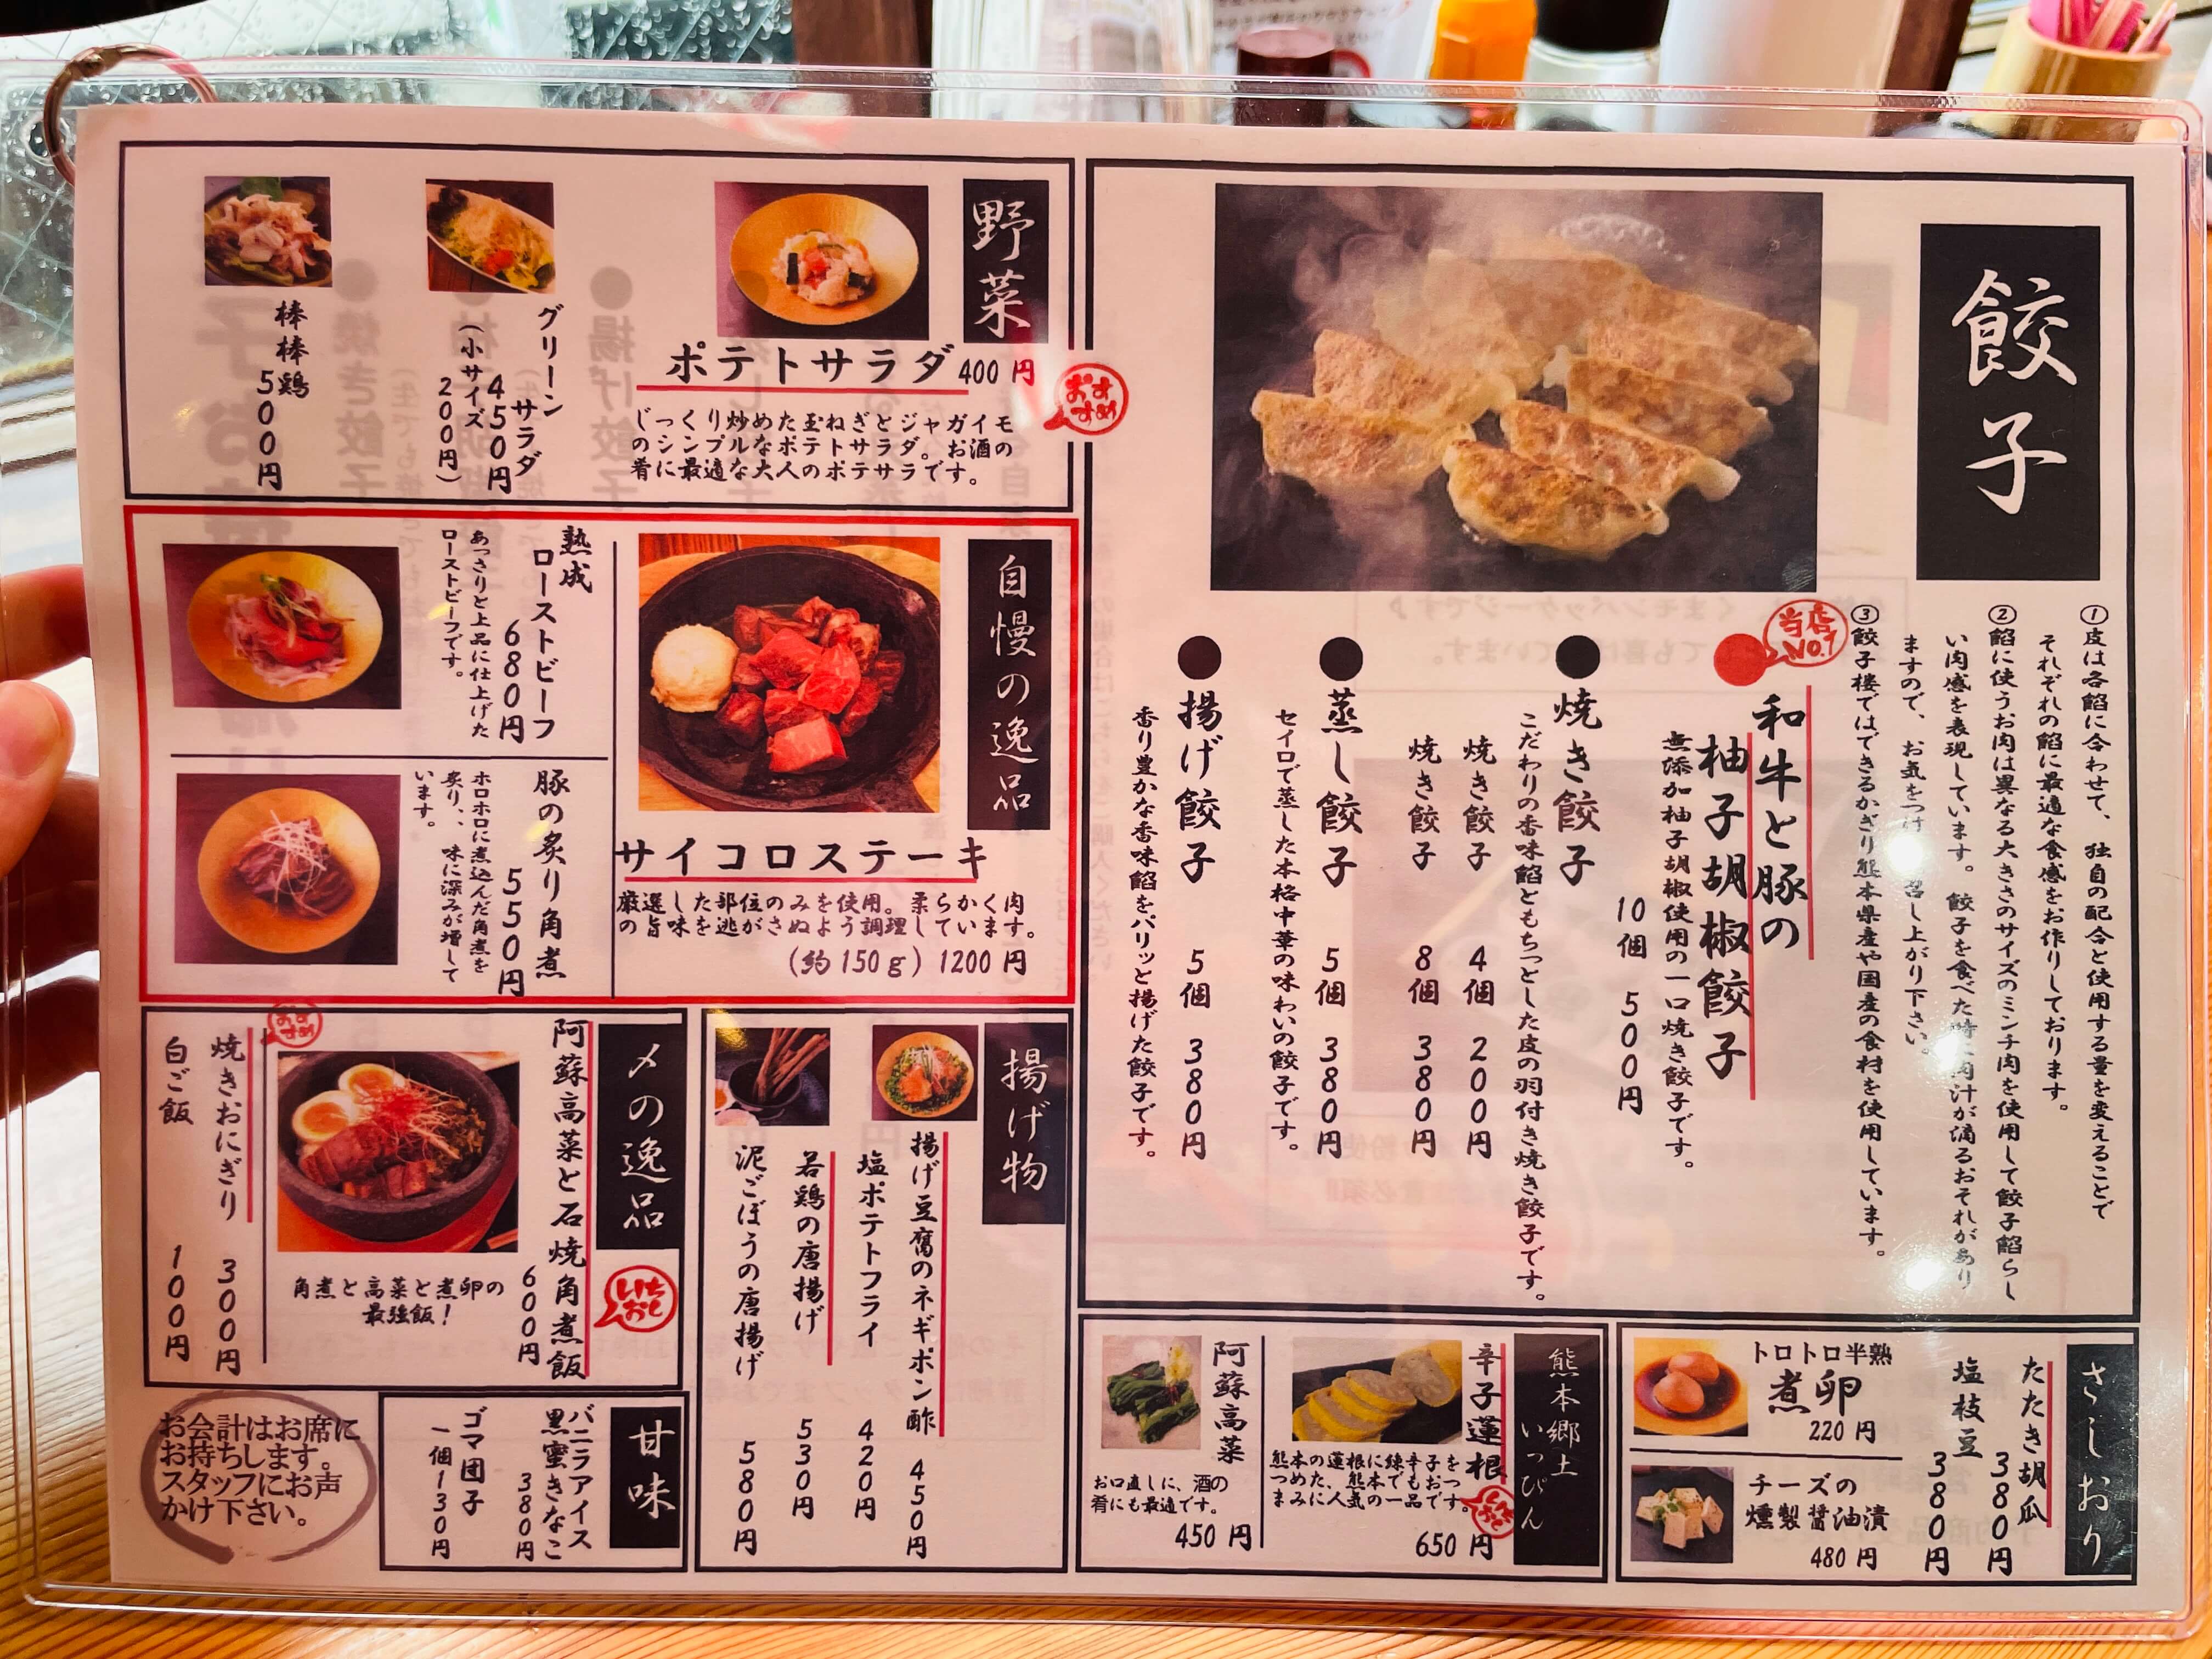 餃子
①皮は各餡に合わせて、独自の配合と使用する量を変えることで
それぞれの餡に最適な食感をお作りしております。
②餡に使うお肉は異なる大きさのサイズのミンチ肉を使用して餃子餡らし
い肉感を表現しています。餃子を食べた時に肉汁が滴るおそれがあり
ますので、お気をつけ 召し上がり下さい。
③餃子楼ではできるかぎり熊本県産や国産の食材を使用しています。
当店No.1
和牛と豚の
柚子胡椒餃子
無添加柚子胡椒使用の一口焼き餃子です。
10個 500円
焼き餃子
こだわりの香味餡ともちっとした皮の羽付き焼き餃子です。
焼き餃子 4個 200円
焼き餃子 8個 380円
蒸し餃子 5個 380円
セイロで蒸した本格中華の味わいの餃子です。
揚げ餃子 5個 380円
香り豊かな香味餡をパリッと揚げた餃子です。
野菜
ポテトサラダ400円
おすすめ
じっくり炒めた玉ねぎとジャガイモ
のシンプルなポテトサラダ。お酒の
肴に最適な大人のポテサラです。
グリーンサラダ
450円
(小サイズ
200円)
棒棒鶏
500円
自慢の逸品
サイコロステーキ
厳選した部位のみを使用。柔らかく肉
の旨味を逃がさぬよう調理しています。
(約150g) 1200円
熟成
ローストビーフ
680円
あっさりと上品に仕上げた
ローストビーフです。
豚の炙り角煮
550円
ホロホロに煮込んだ角煮を
炙り、、味に深みが増して
います。
揚げ物
揚げ豆腐のネギポン酢 450円
塩ポテトフライ 420円
若鶏の唐揚げ 530円
泥ごぼうの唐揚げ 580円
〆の逸品
いちおし
阿蘇高菜と石焼角煮飯
600円
角煮と高菜と煮卵の
最強飯!
おすすめ
焼きおにぎり 300円
白ご飯 100円
甘味
バニラアイス
黒蜜きなこ
380円
ゴマ団子
一個130円
お会計はお席に
お持ちします。
スタッフにお声
かけ下さい。
さしおり
たたき胡瓜
380円
塩枝豆
380円
トロトロ半熟
煮卵
220円
チーズの
燻製醤油漬
480円
熊本郷土
いっぴん
辛子蓮根
熊本の蓮根に練辛子を
つめた、熊本でもおつ
まみに人気の一品です。
いちおし
650円
阿蘇高菜
お口直しに、酒の
肴にも最適です。
450円